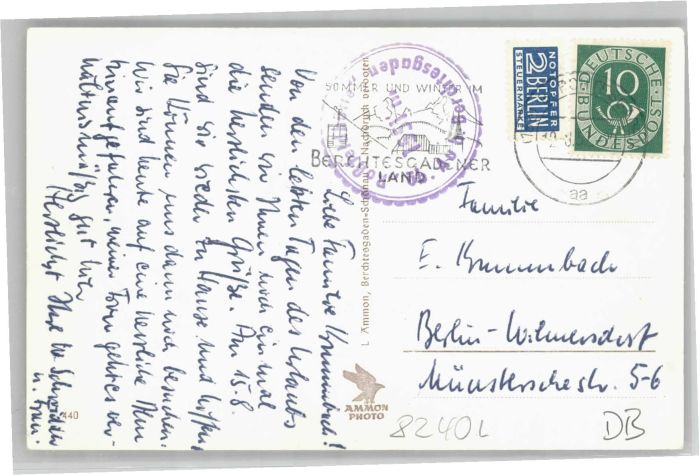 Liebe Familie Krummbach!
Von den letzten Tagen des Urlaubs
senden wir Ihnen noch einmal
die herzlichsten Grüße. Am 15.8.
sind wir wieder zu Hause und hoffen,
Sie können uns dann noch besuchen.
Wir sind heute auf eine herrliche Alm
hinaufgefahren, meiner Frau geht es ver-
hältnismäßig gut hier
Herzlichst Ihre W. Schneider
u. Frau.
440
L. Ammon, Berchtesgaden-Schönau - Nachdruck verboten
AMMON
PHOTO
SOMMER UND WINTER IM
BERCHTESGADENER
LAND
NOTOPFER
2 BERLIN
STEUERMARKE
DEUTSCHE
BUNDESPOST
10
aa
Familie
E. Krummbach
Berlin-Wilmersdorf
Münsterschestr. 5-6
8240L
DB